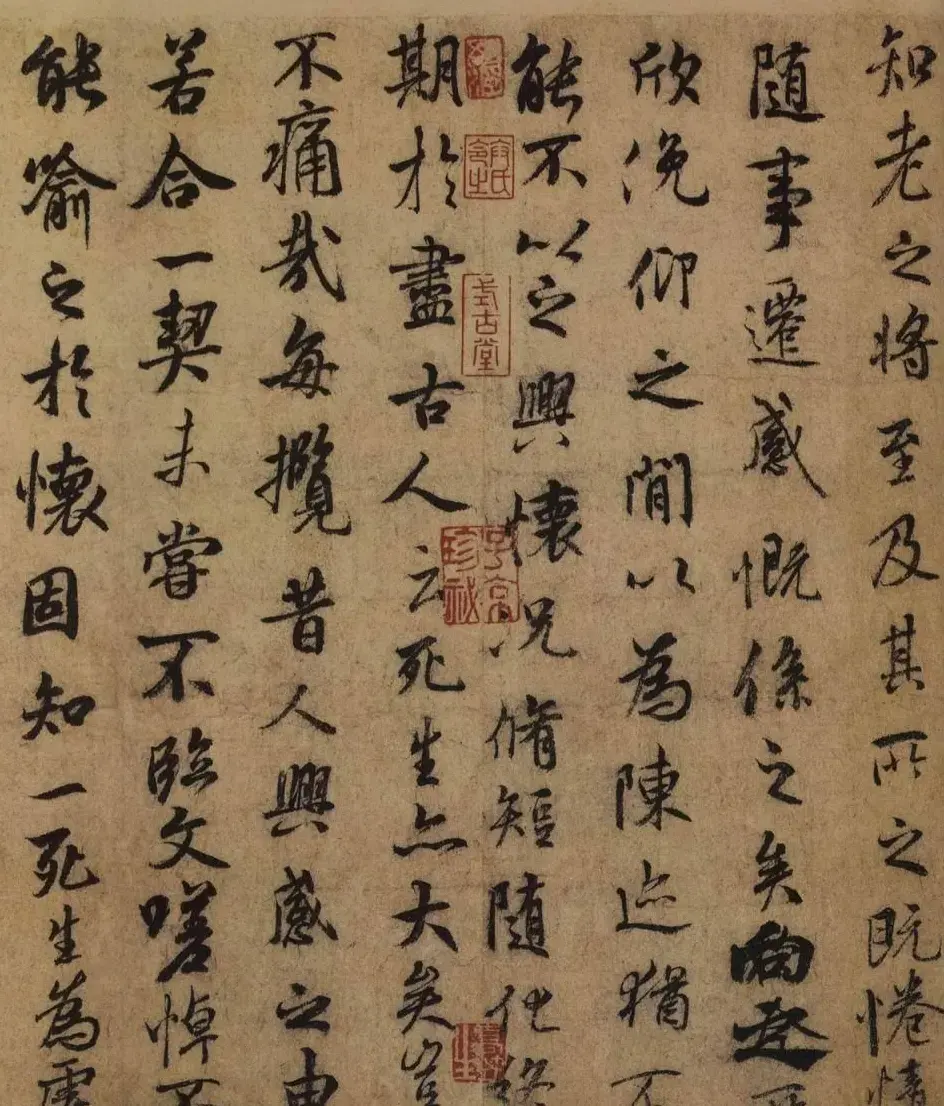 知老之将至及其所之既惓情
随事遷感慨係之矣向之所
欣俛仰之閒以為陳迹猶不
能不以之興懷況脩短随化終
期於盡古人云死生亦大矣豈
不痛哉每攬昔人興感之由
若合一契未嘗不臨文嗟悼不
能喻之於懷固知一死生為虛
式古堂
子京珍秘